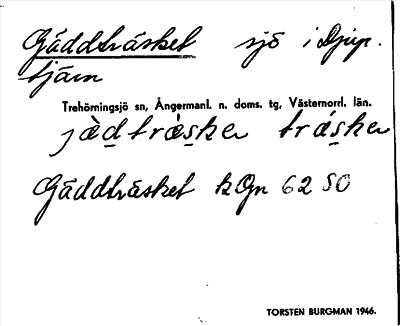 Gäddträsket sjö i Djup.
tjärn
Trehörningsjö sn, Ångermanl. n. doms. tg, Västernorrl. län.
jæ̀dtræsker trǽsker
Gäddträsket k Gn 62 SO
TORSTEN BURGMAN 1946.